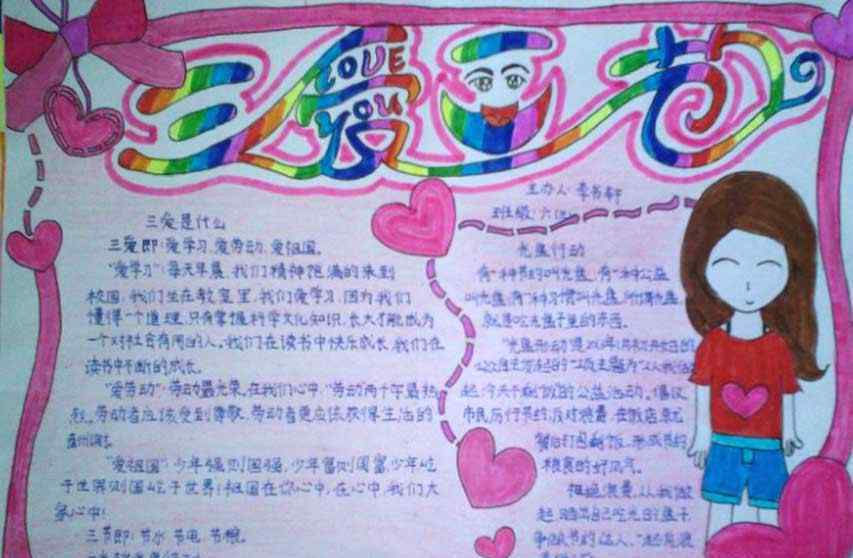 三爱三节
LOVE
YOU
三爱是什么
三爱即:爱学习,爱劳动,爱祖国。
"爱学习":每天早晨,我们精神饱满的来到
校园,我们坐在教室里,我们爱学习,因为我们
懂得一个道理,只有掌握科学文化知识,长大才能成为
一个对社会有用的人。我们在读书中快乐成长,我们在
读书中不断的成长。
"爱劳动":劳动最光荣,在我们心中,"劳动两个字最热
烈。劳动者应该受到尊敬,劳动者更应该获得生活的
"爱祖国":少年强则国强,少年富则国富,少年屹
于世界则国屹于世界!祖国在你心中,在心中,我们大
家心中!
三节即:节水 节电 节粮。
主办人:李书轩
班级:六
光盘行动
有一种节约叫光盘,有一种公益
叫光盘,有一种习惯叫光盘,所谓光盘,
就是吃光盘子里的东西。
"光盘行动"是
公众自主发起的 主题为"从我
起,今天不剩饭"的公益活动。倡议
市民厉行节约反对浪费,在饭店就
餐后打包剩饭,形成节约
粮食的好风气。
拒绝浪费,从我做
起,晒出自己吃光的盘子
争做节约达人,